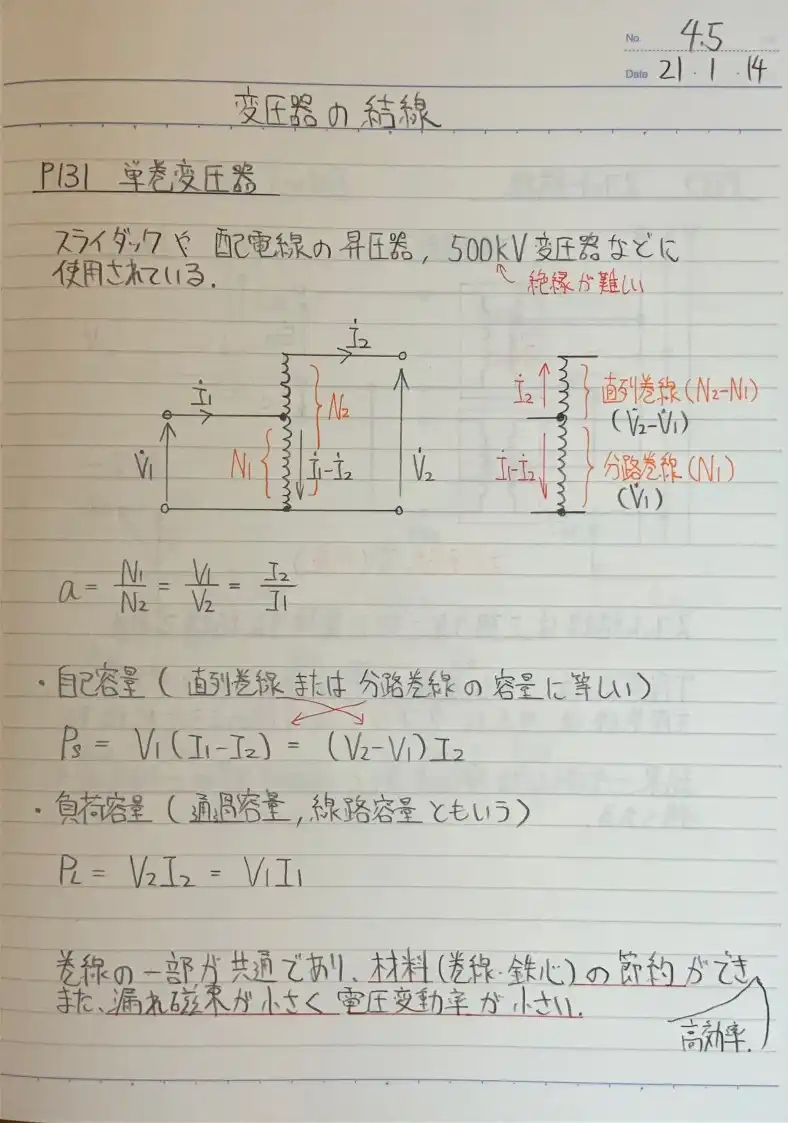 No. 4.5
Date 21・1・14
変圧器の結線
P131 単巻変圧器
スライダックや配電線の昇圧器, 500kV変圧器などに
使用されている.
絶縁が難しい
İ2
İ1
N2
N1
İ1-İ2
V̇1
V̇2
İ2
直列巻線(N2-N1)
(V̇2-V̇1)
İ1-İ2
分路巻線(N1)
(V̇1)
a = N1/N2 = V1/V2 = I2/I1
・自己容量(直列巻線または分路巻線の容量に等しい)
Ps = V1(I1-I2) = (V2-V1)I2
・負荷容量(通過容量,線路容量ともいう)
PL = V2I2 = V1I1
巻線の一部が共通であり、材料(巻線・鉄心)の節約ができ
また、漏れ磁束が小さく電圧変動率が小さい.
高効率.